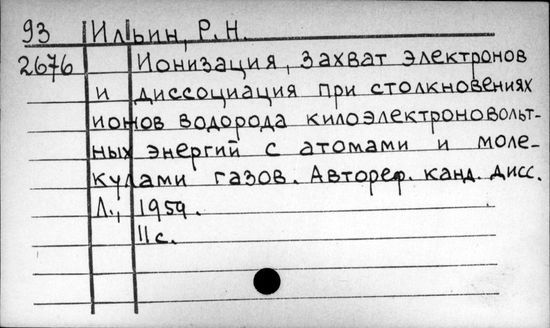 93 Ильин, Р.Н.
2676 Ионизация, захват электронов
и диссоциация при столкновениях
ионов водорода килоэлектроновольт-
ных энергий с атомами и моле-
кулами газов. Автореф. канд. дисс.
Л., 1959.
11 с.